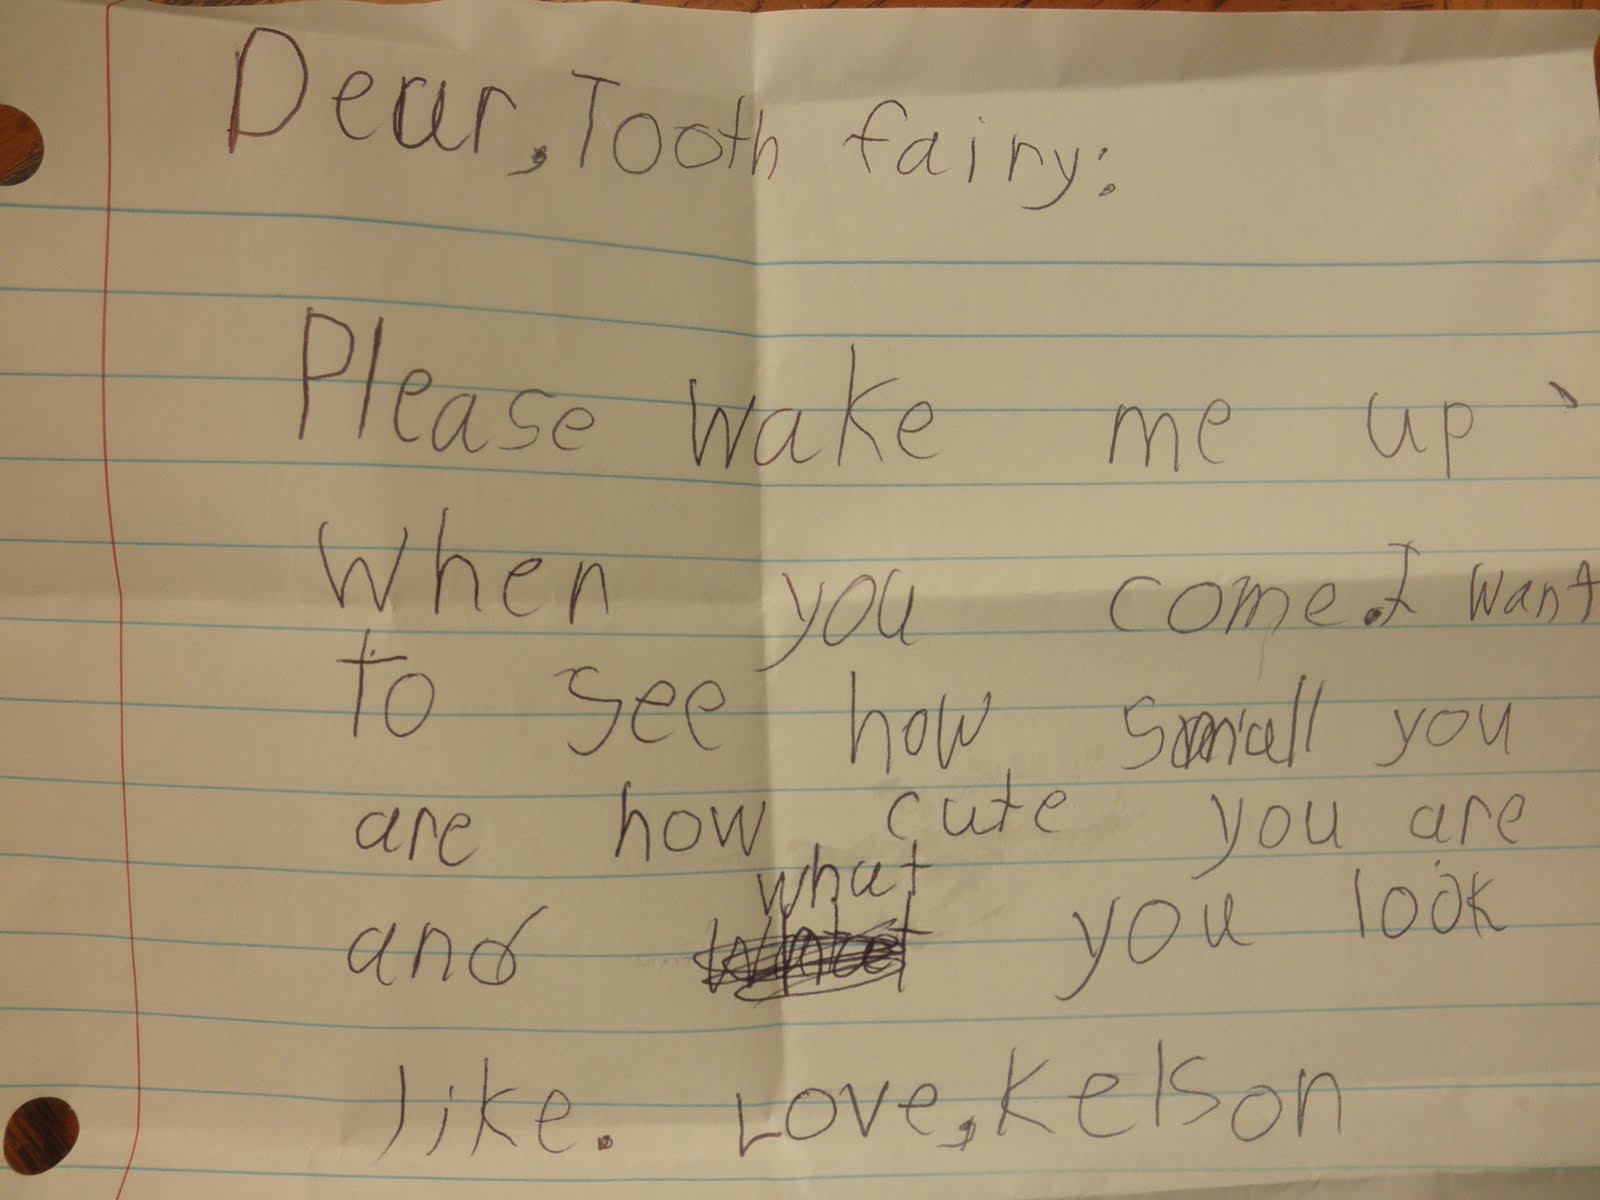 Dear, Tooth fairy:
Please wake me up
When you come. I want
to see how small you
are how cute you are
and what you look
like. Love, Kelson